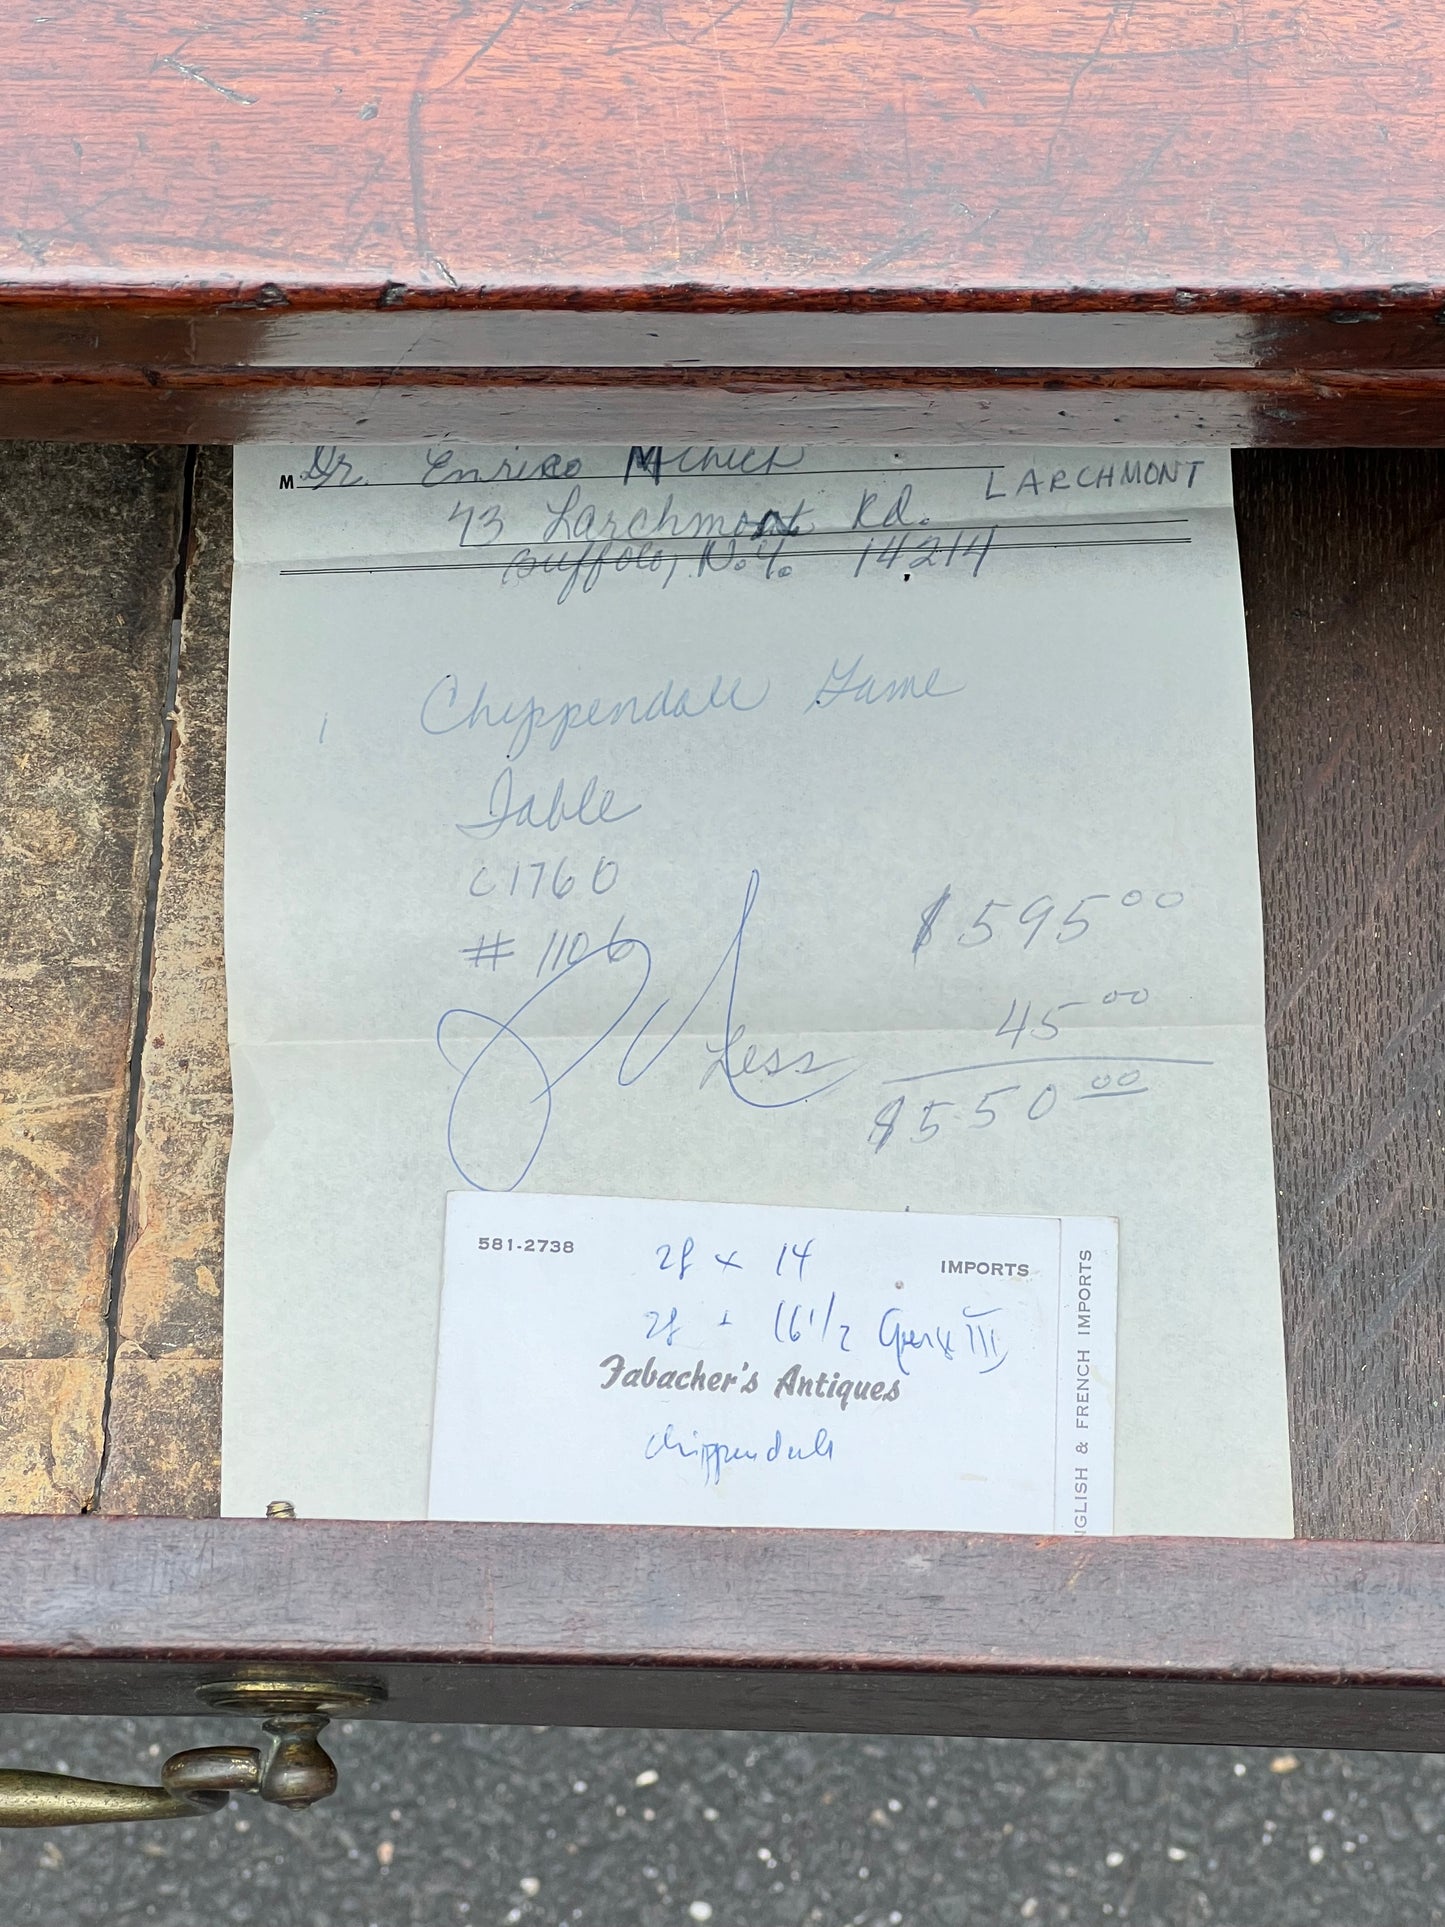 M Dr. Enrico Mihich
LARCHMONT
73 Larchmont Rd.
Buffolo, N.Y. 14214
1 Chippendale Game
Table
C1760
# 1106
$595.00
Less 45.00
$550.00
581-2738
28 x 14
IMPORTS
28 x 16 1/2 George III
Fabacher's Antiques
Chippendale
NGLISH & FRENCH IMPORTS